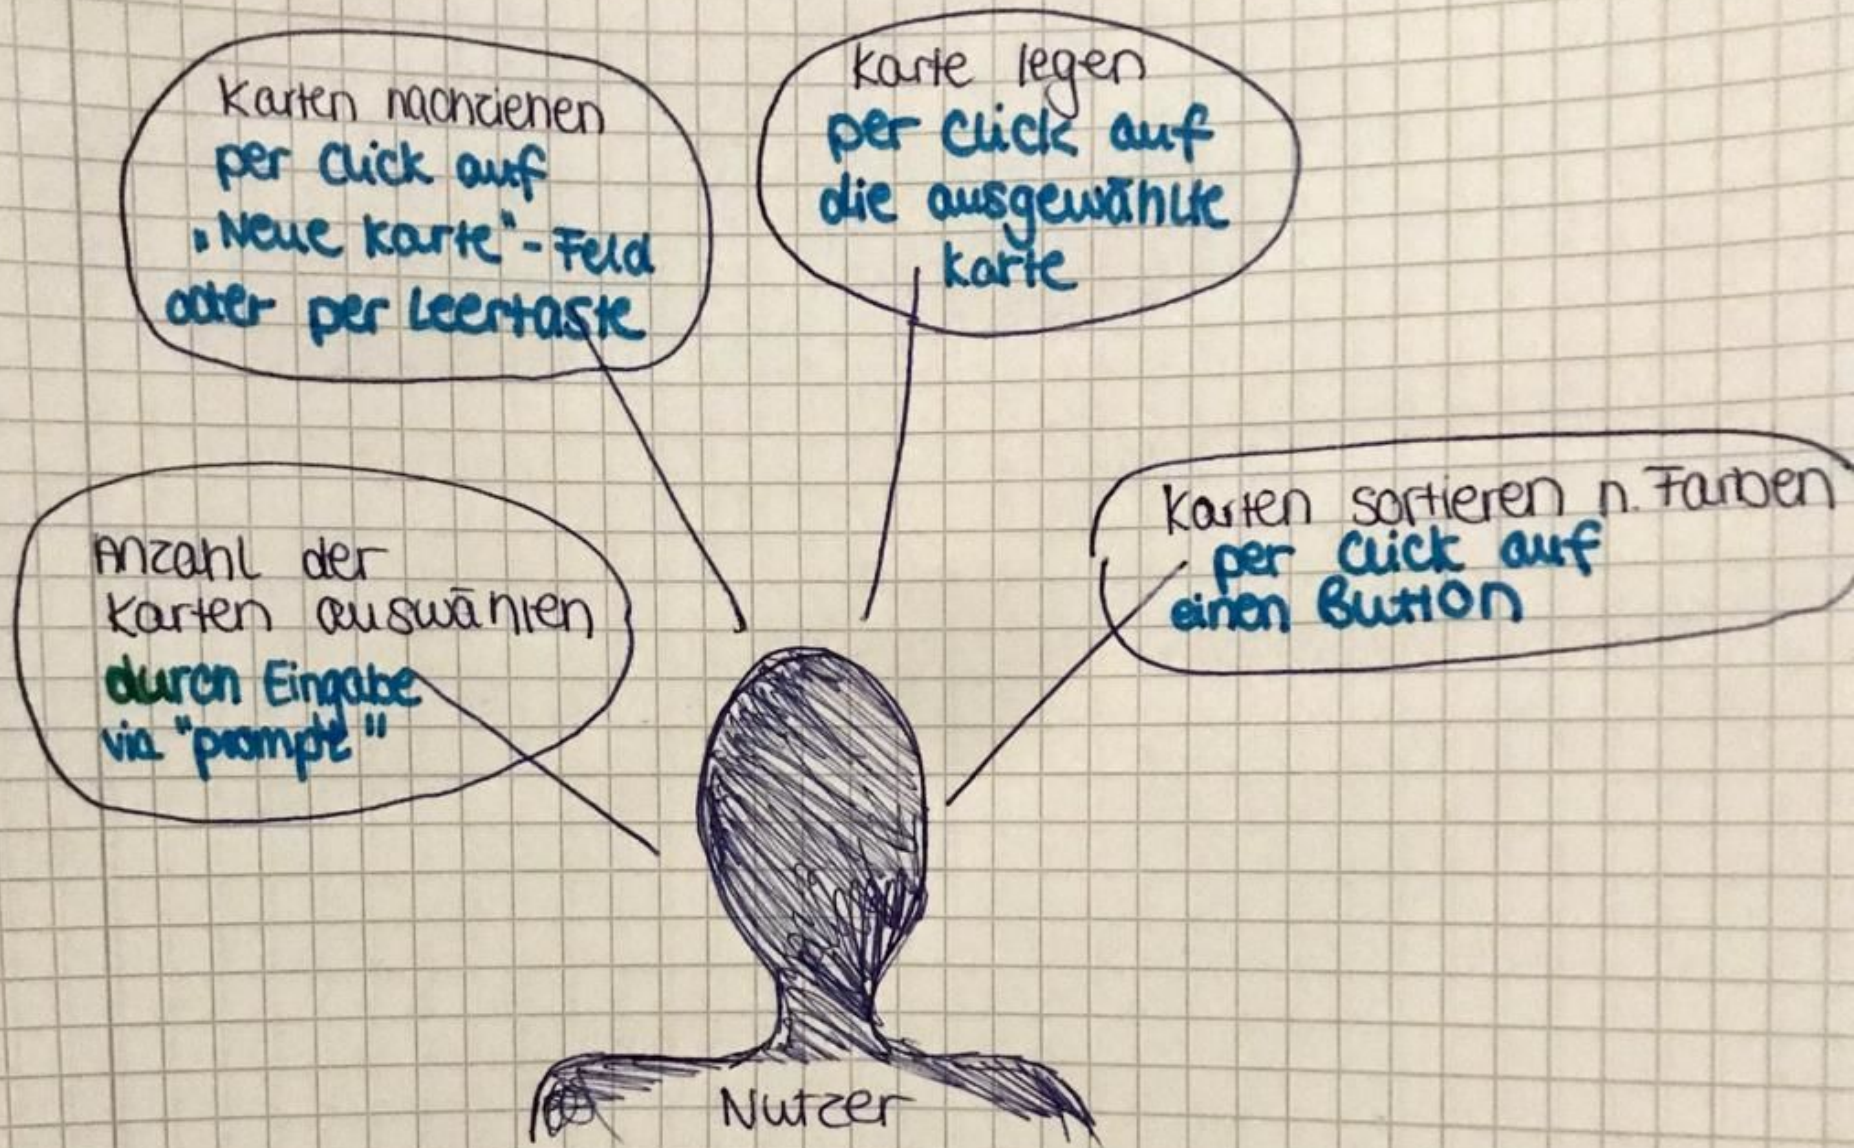 Karten nachziehen
per Click auf
„Neue Karte"-Feld
oder per Leertaste
Karte legen
per Click auf
die ausgewählte
Karte
Anzahl der
Karten auswählen
durch Eingabe
via "prompt"
Karten sortieren n. Farben
per Click auf
einen Button
Nutzer